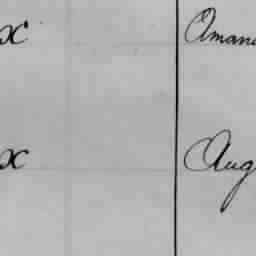 x Aman
x Aug